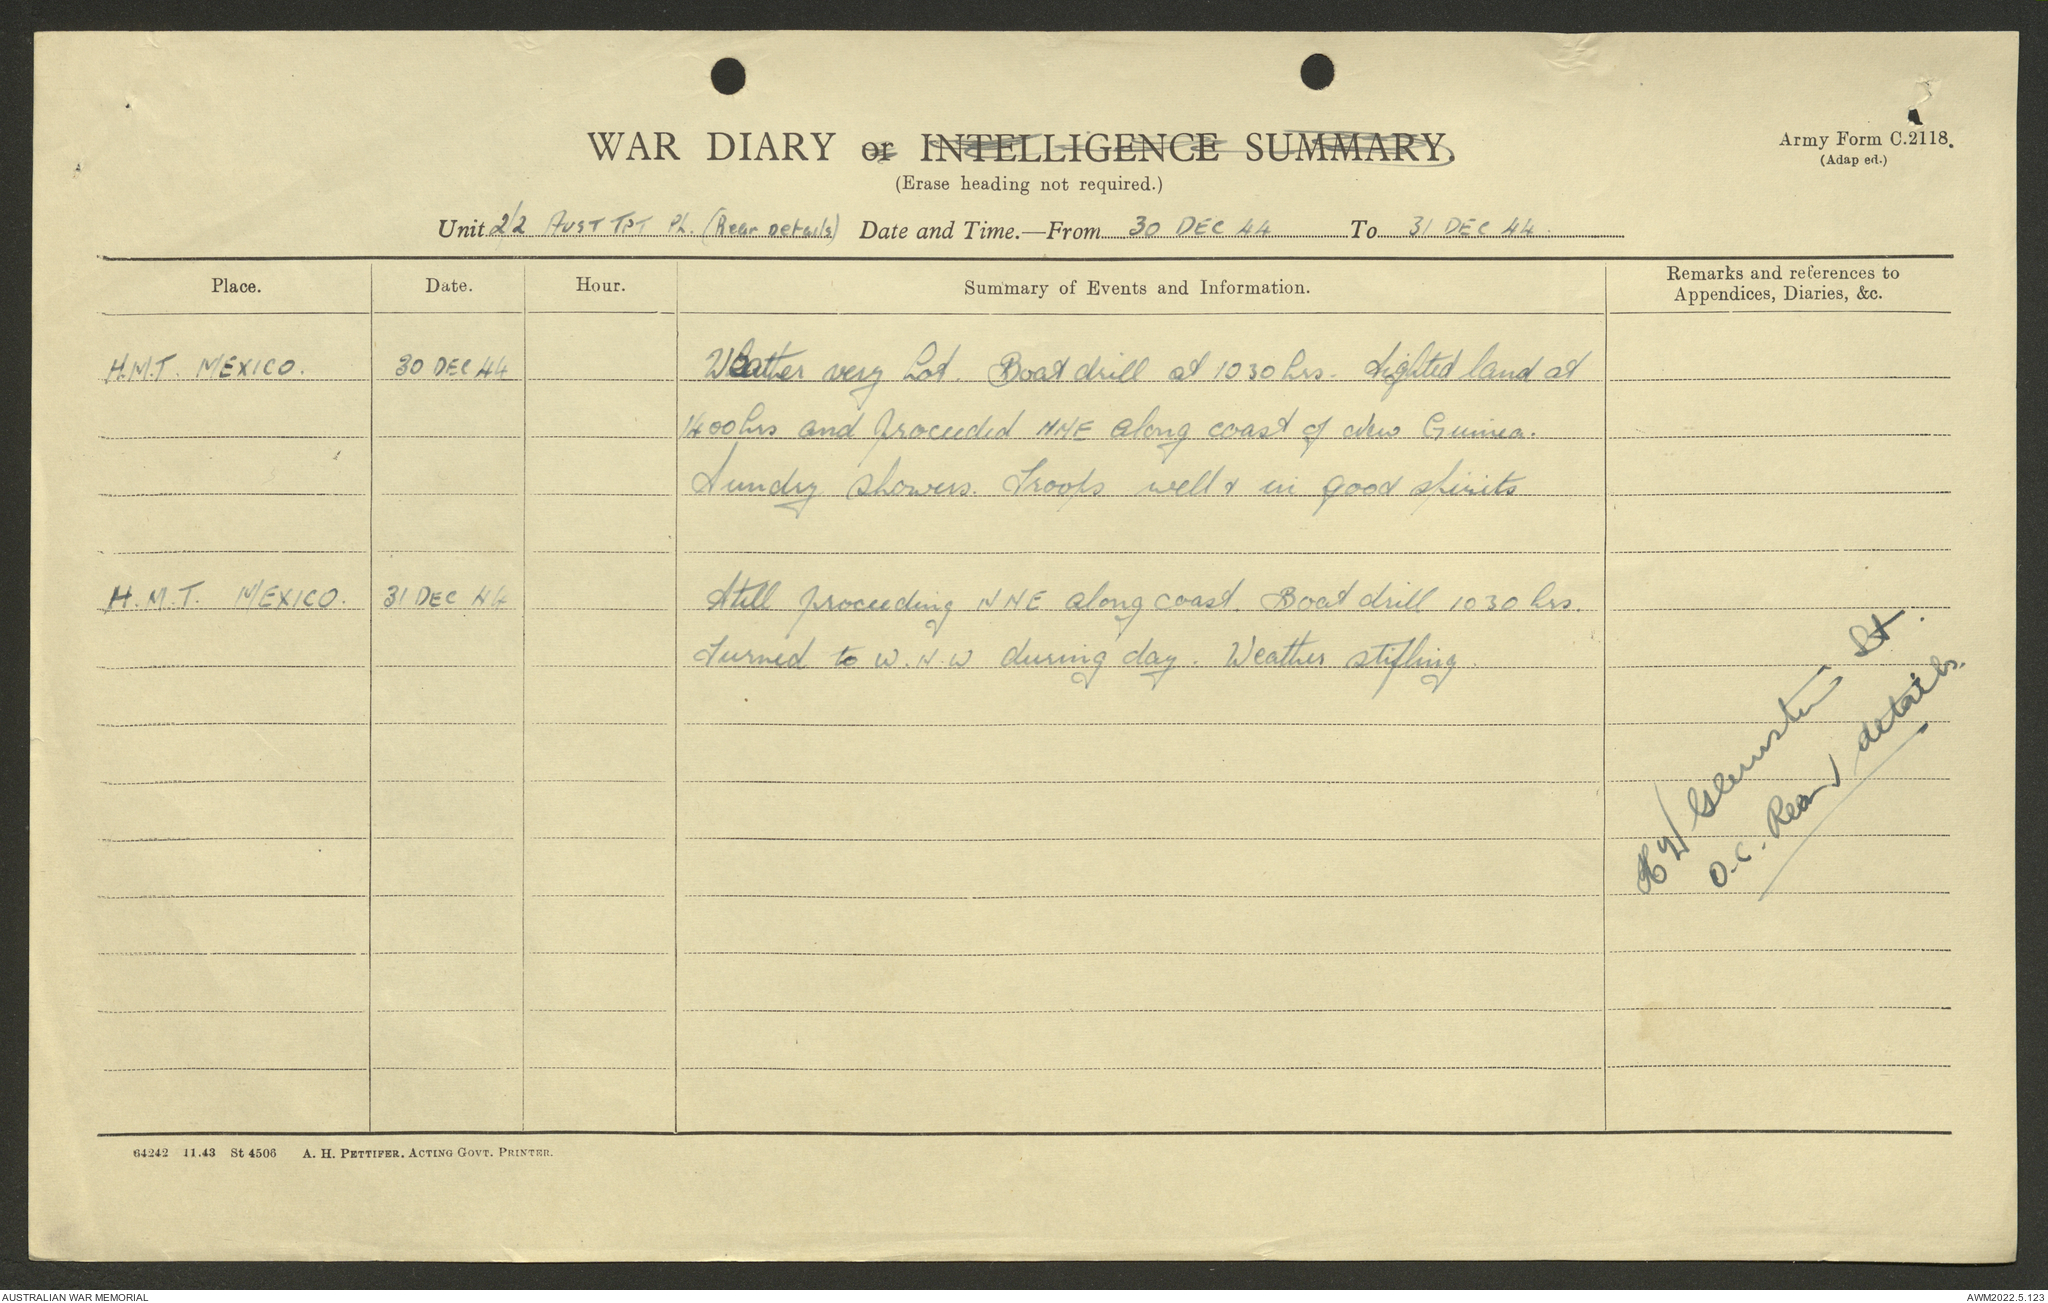 WAR DIARY or INTELLIGENCE SUMMARY.
Army Form C.2118.
(Adap ed.)
(Erase heading not required.)
Unit 2/2 AUST TPT PL. (Rear Details) Date and Time.—From 30 DEC 44 To 31 DEC 44.
Place. Date. Hour. Summary of Events and Information. Remarks and references to
Appendices, Diaries, &c.
H.M.T. MEXICO. 30 DEC 44 Weather very hot. Boat drill at 1030 hrs. Sighted land at
1400 hrs and proceeded NNE along coast of New Guinea.
Sundry showers. Troops well & in good spirits
H.M.T. MEXICO. 31 DEC 44 Still proceeding NNE along coast. Boat drill 1030 hrs.
Turned to W.N.W during day. Weather stifling.
O.C. Rear details.
64242 11.43 St 4506 A. H. PETTIFER. ACTING GOVT. PRINTER.
AUSTRALIAN WAR MEMORIAL
AWM2022.5.123